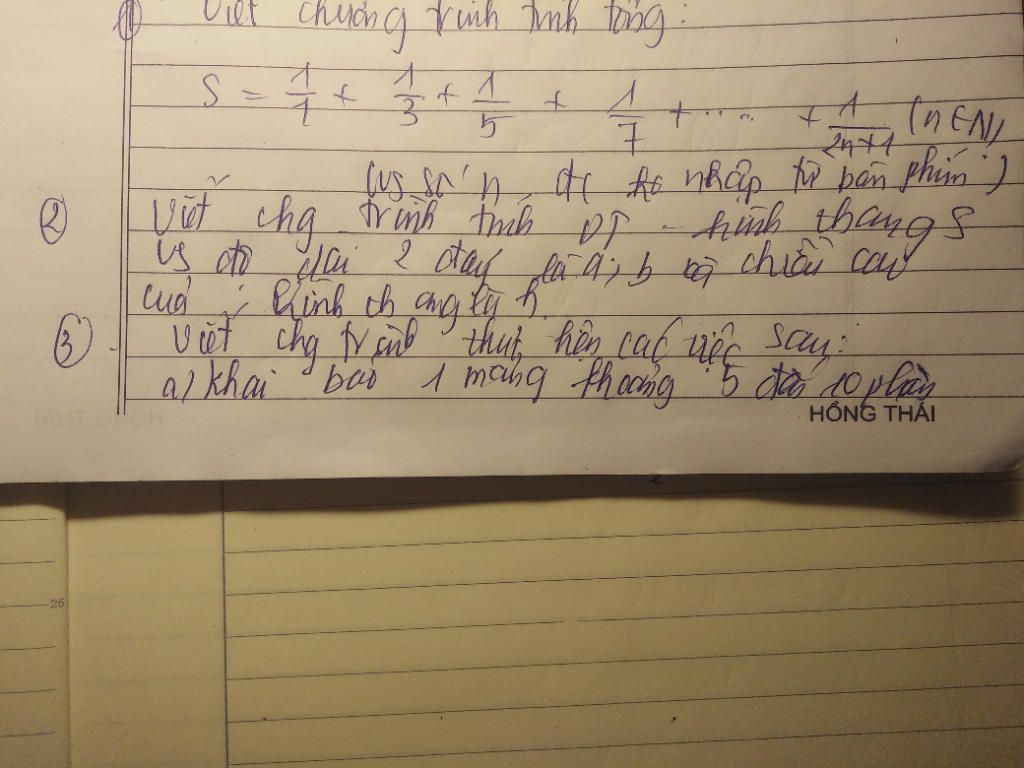 1 Viết chương trình tính tổng:
S = 1/1 + 1/3 + 1/5 + 1/7 + .... + 1/2n+1 (n ∈ N)
(vs số n đc nhập từ bàn phím)
2 Viết chg trình tính DT hình thang S
vs độ dài 2 đáy là a; b và chiều cao
của hình thang là h.
3 Viết chg trình thực hiện các việc sau:
a) Khai báo 1 mảng khoảng 5 đến 10 phần
HỒNG THÁI
26